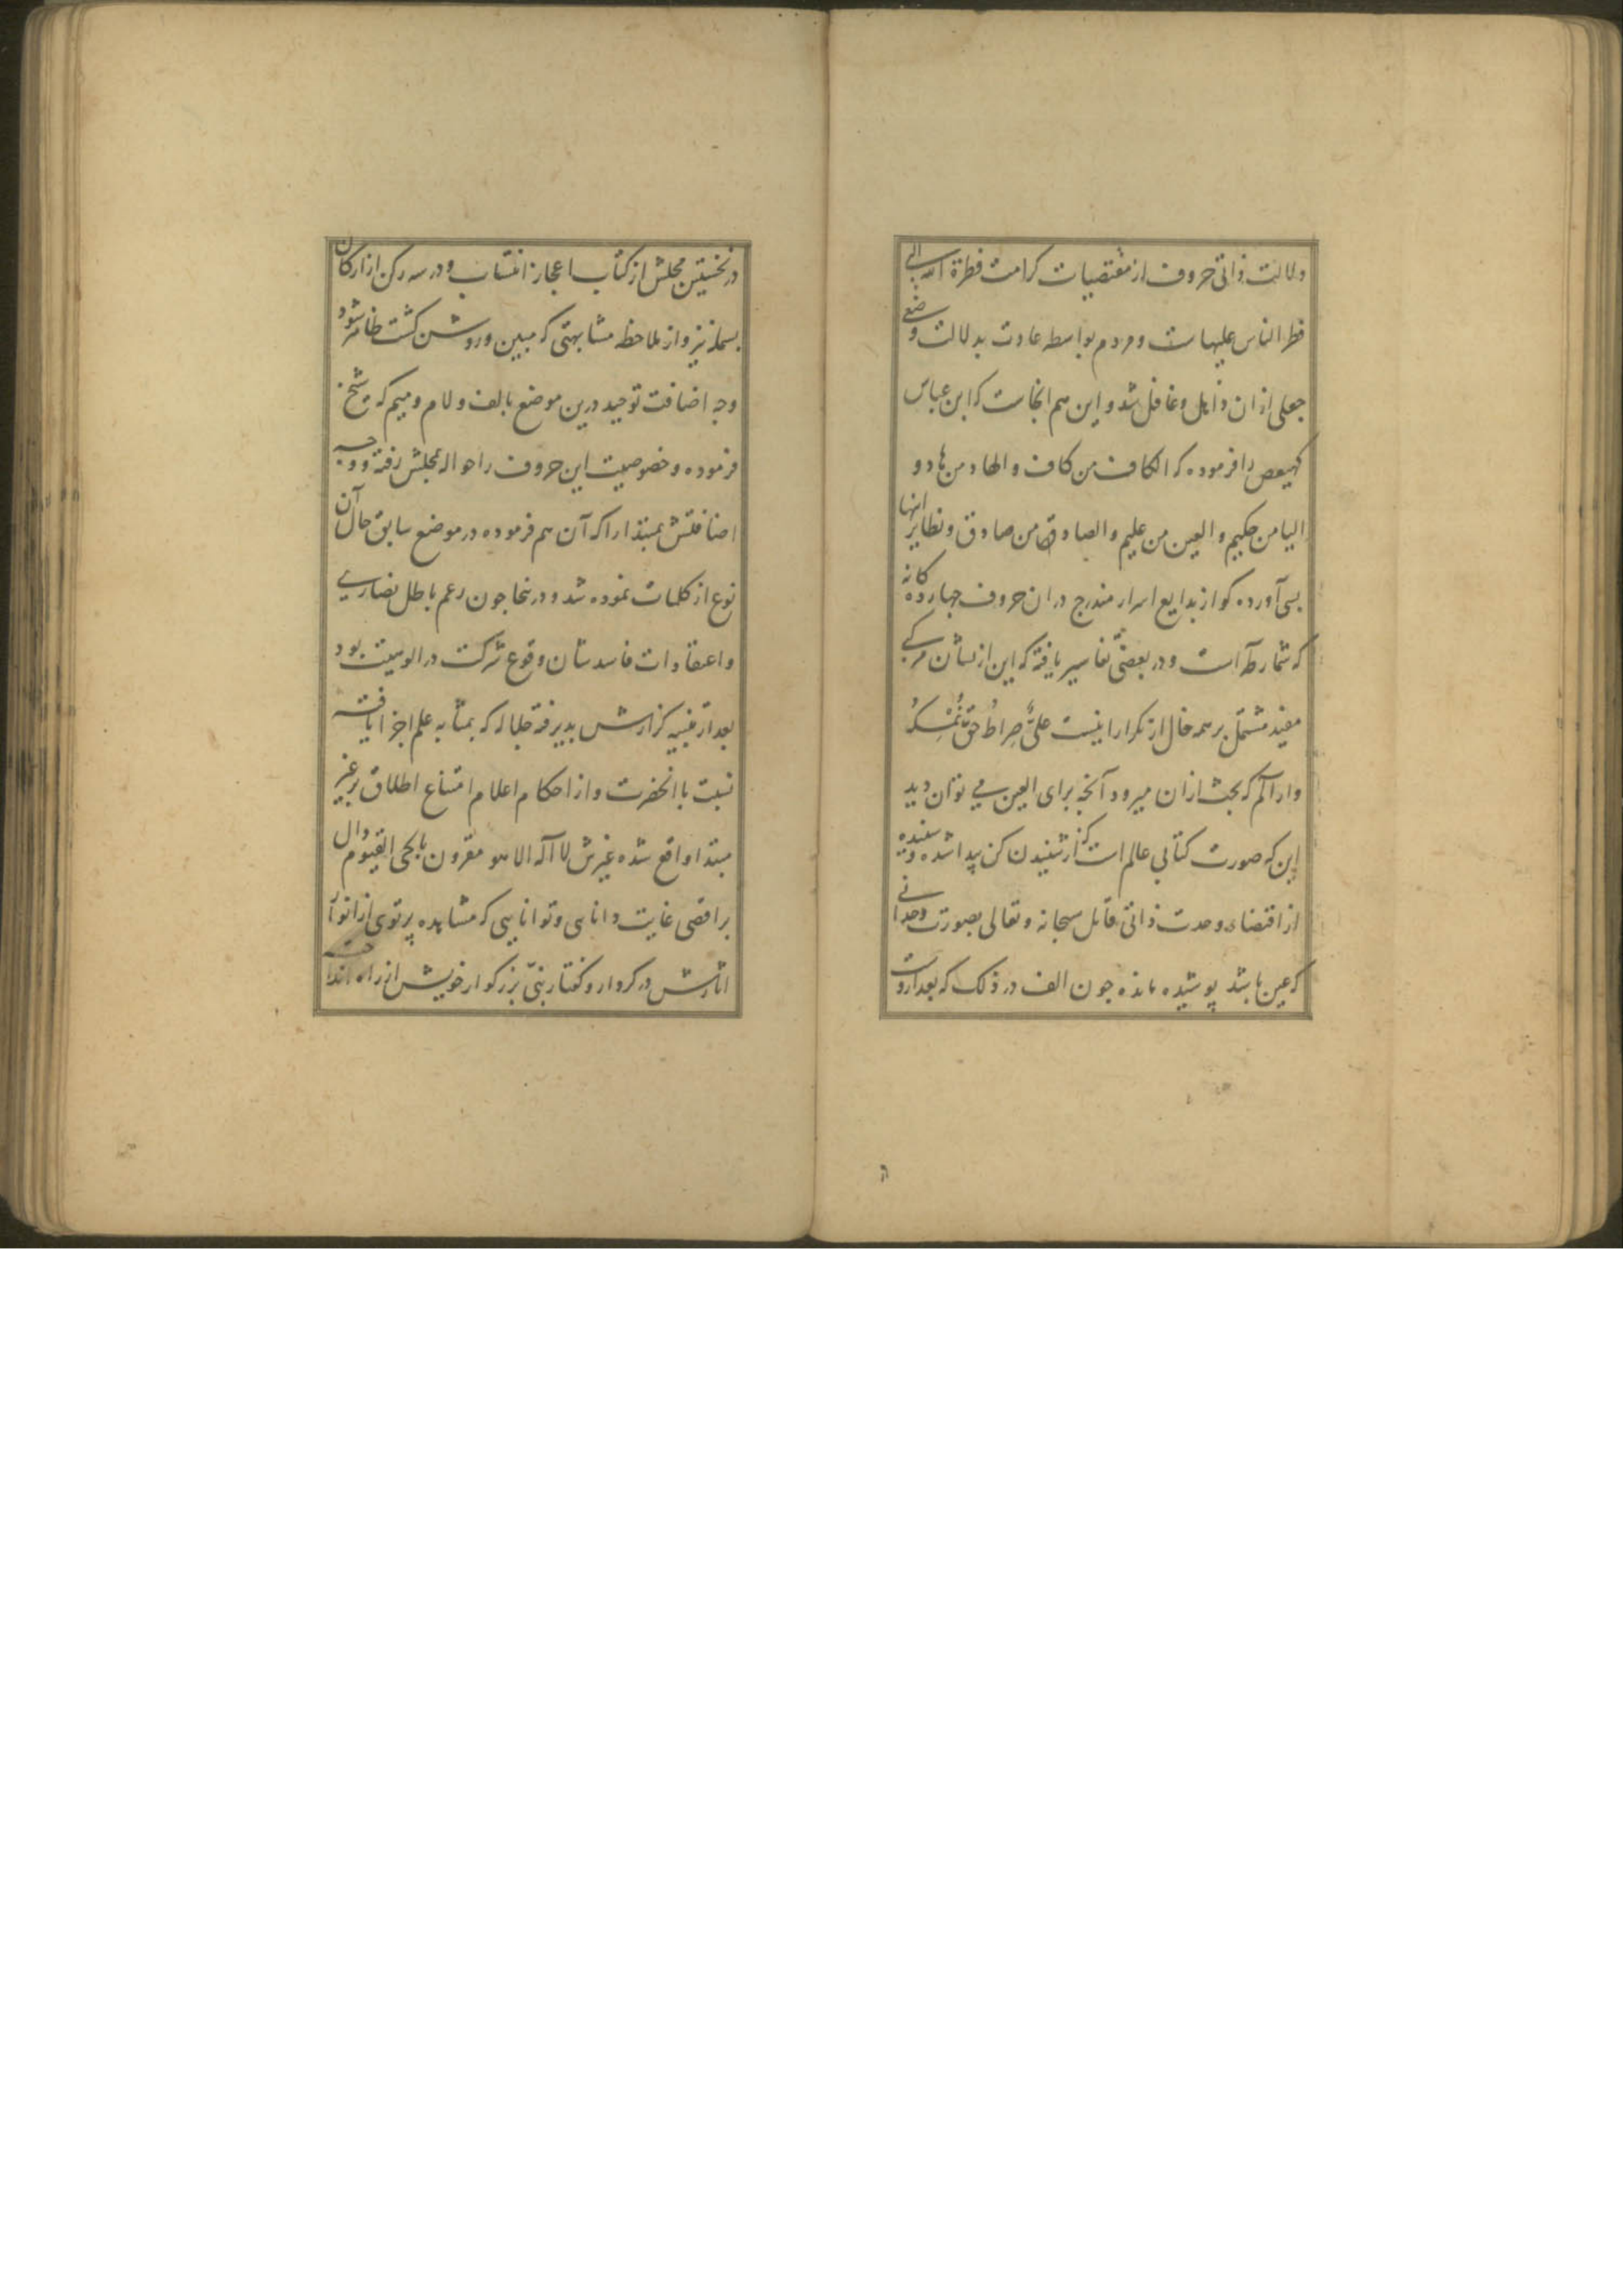 دلالت ذاتی حروف از مقتضیات کرامت فطرة الله التی
فطر الناس علیهاست و مردم بواسطه عادت بدلالت وضعی
جعلی ازان ذاهل و غافل شد و این هم انجاست که ابن عباس
کهیعص را فرموده که الکاف من کاف و الهاد من هاد و
الیا من حکیم و العین من علیم و الصاد من صادق و نظایر اینها
بسی آورده کو از بدایع اسرار مندرج دران حروف جهارده کانه
که شمار طه است و در بعضی تفاسیر یافته که این از نشان مرکبی
مفید مشتمل بر همه خال از تکرار اینست علیٌّ صِراطُ حَقٍّ نُمْسِکُهُ
وار آلم که بحث ازان میرود آنجه برای العین می توان دید
این که صورت کتابی عالم است که از شنیدن کن پیدا شده و شنونده
از اقتضاء وحدت ذاتی قائل سبحانه و تعالی بصورت وحدانی
که عین باشد پوشیده مانده جون الف در ذلک که بعد ازوست
در نخستین مجلش از کتاب اعجاز انتساب و در سه رکن از ارکان
بسمله نیز و از ملاحظه مشابهتی که مبین و روشن کشت ظاهر شود
وجه اضافت توحید درین موضع بالف و لام و میم که شیخ
فرموده و خصوصیت این حروف را حواله مجلش رفته و وجه
اضافتش بمبتدا را که آن هم فرموده در موضع سابق حال آن
نوع از کلمات نموده شد و در ینجا جون زعم باطل نصاری
و اعتقادات فاسدشان وقوع شرکت در الوهیت بود
بعد از تنبیه کزارش بدیرفته جلاله که بمثابه علم اجرا یافته
نسبت با انحضرت و از احکام اعلام امتناع اطلاق بر غیر
مبتدا واقع شده غیرش لا اله الا هو مقرون بالحی القیوم دال
بر اقصی غایت دانایی و توانایی که مشاهده پرتوی از انوار
اثارش در کردار و کفتار بنیّ بزرکوار خویش از راه انداخته